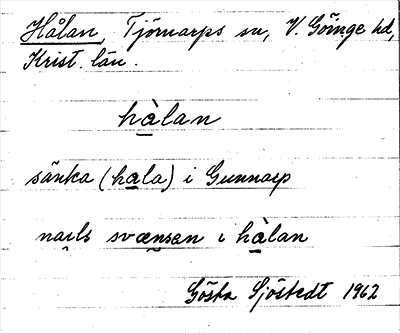 Hålan, Tjörnarps sn, V. Göinge hd,
Krist. län.
hàlan
sänka (hala) i Gunnarp
nails svænsen i hàlan
Gösta Sjöstedt 1962